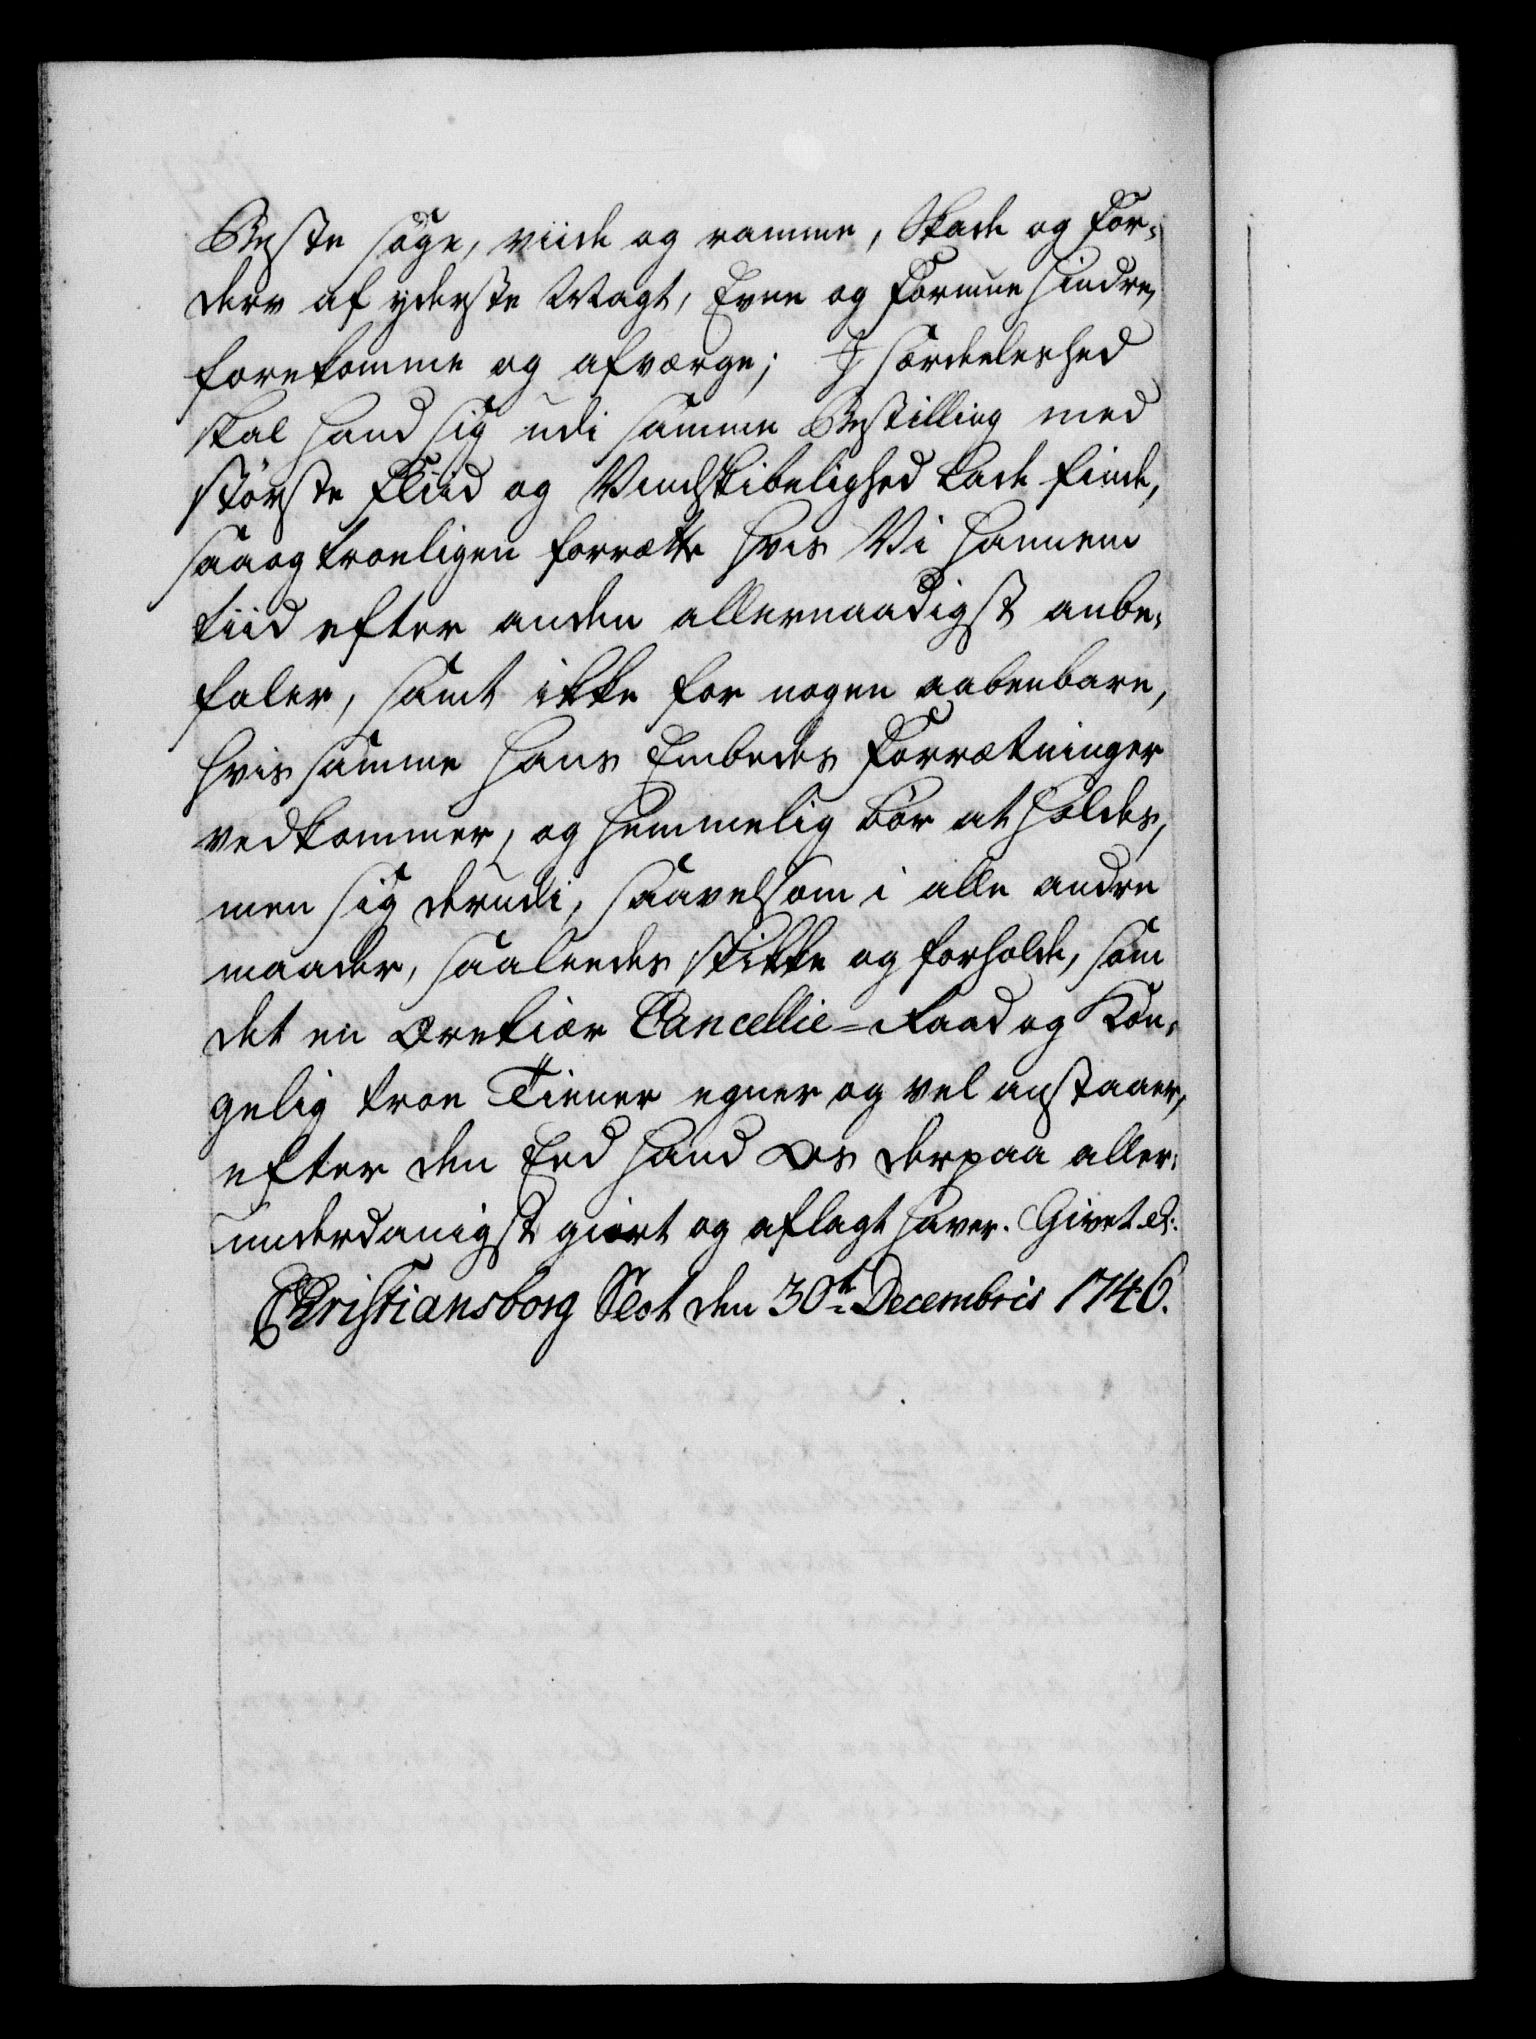 Beste søge, viide og ramme, Skade og For-
derv af yderste Magt, Evne og Formue hindre,
forekomme og afværge; I særdeeleshed
skal hand sig udi samme Bestilling med
største Fliid og Vindskibelighed lade finde,
saa og troeligen forrætte hvis Vi hannem
tiid efter anden allernaadigst anbe-
faler, samt ikke for nogen aabenbare,
hvis samme hans Embedes Forrætninger
vedkommer, og hemmelig bør at holdes,
men sig derudi, saavelsom i alle andre
maader, saaleedes skikke og forholde, som
det en ærekiær Cancellie-Raad og Kon-
gelig troe Tiener egner og vel anstaaer,
efter den Eed hand Os derpaa aller-
underdanigst giort og aflagt haver. Givet &.
Christiansborg Slot den 30te Decembris 1746.